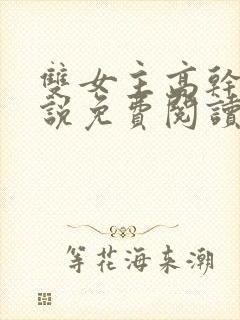 雙女主高幹
說免費閱讀
等花海来潮